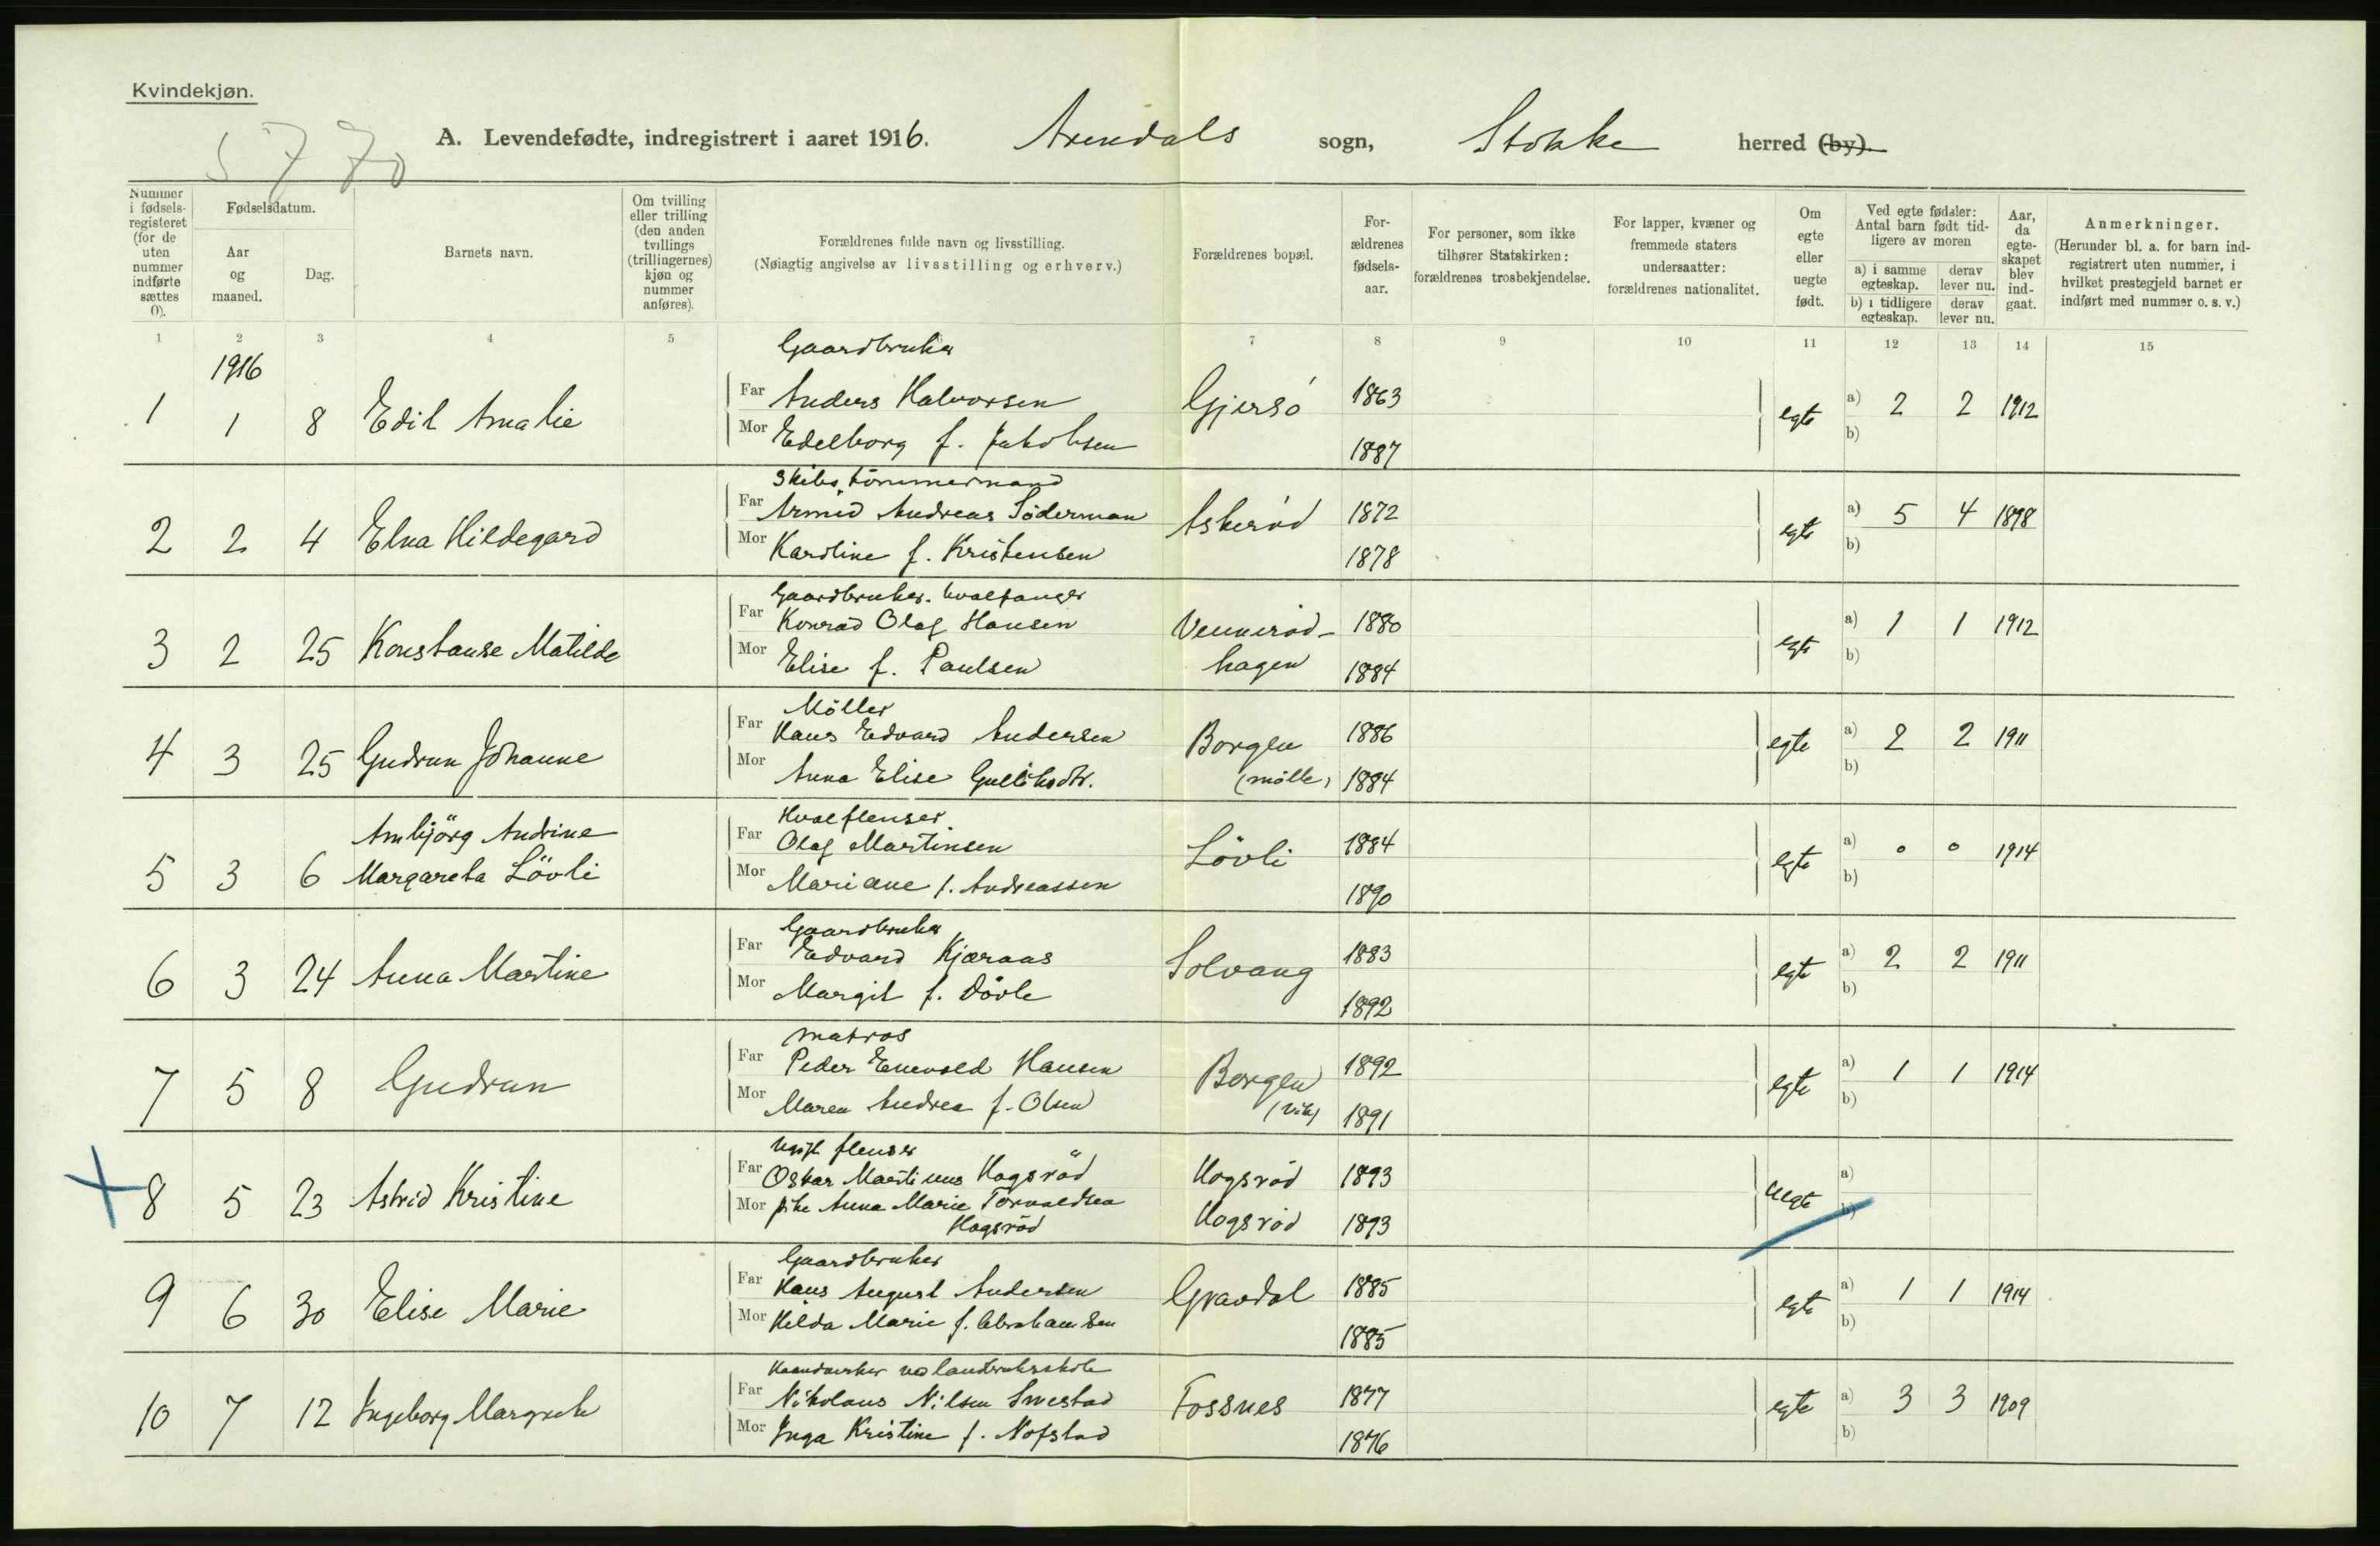 Kvindekjøn.
5770
A. Levendefødte, indregistrert i aaret 1916. Arendals sogn, Stokke herred (by).
Nummer i fødselsregisteret (for de uten nummer indførte sættes 0).
Fødselsdatum.
Aar og maaned.
Dag.
Barnets navn.
Om tvilling eller trilling (den anden tvillings (trillingernes) kjøn og nummer anføres).
Forældrenes fulde navn og livsstilling.
(Nøiagtig angivelse av livsstilling og erhverv.)
Forældrenes bopæl.
Forældrenes fødselsaar.
For personer, som ikke tilhører Statskirken: forældrenes trosbekjendelse.
For lapper, kvæner og fremmede staters undersaatter: forældrenes nationalitet.
Om egte eller uegte født.
Ved egte fødsler: Antal barn født tidligere av moren
a) i samme egteskap. derav lever nu.
b) i tidligere egteskap. derav lever nu.
Aar, da egteskapet blev indgaat.
Anmerkninger.
(Herunder bl. a. for barn indregistrert uten nummer, i hvilket prestegjeld barnet er indført med nummer o. s. v.)
1 2 3 4 5 7 8 9 10 11 12 13 14 15
1916
Gaardbruker
1 1 8 Edit Amalie Far Anders Halvorsen Gjersö 1863 egte a) 2 2 1912
Mor Edelborg f. Jakobsen 1887 b)
Skibstömmermand
2 2 4 Elna Hildegard Far Armid Andreas Söderman Askeröd 1872 egte a) 5 4 1898
Mor Karoline f. Kristensen 1878 b)
Gaardbruker. hvalfanger
3 2 25 Konstanse Matilde Far Konrad Olaf Hansen Venneröd- 1880 egte a) 1 1 1912
Mor Elise f. Paulsen hagen 1884 b)
Möller
4 3 25 Gudrun Johanne Far Hans Edvard Andersen Borgen 1886 egte a) 2 2 1911
Mor Anna Elise Gulliksdtr. (mölle) 1884 b)
Hvalflenser
Arnbjörg Andrine Far Olaf Martinsen Lövli 1884 egte a) 0 0 1914
5 3 6 Margareta Lövli Mor Mariane f. Andreassen 1890 b)
Gaardbruker
6 3 24 Anna Martine Far Edvard Kjæraas Solvang 1883 egte a) 2 2 1911
Mor Margit f. Dövle 1892 b)
matros
7 5 8 Gudrun Far Peder Enevold Hansen Borgen 1892 egte a) 1 1 1914
Mor Maren Andrea f. Olsen (vik) 1891 b)
Ugift flenser
8 5 23 Astrid Kristine Far Oskar Martinus Hogsröd Hogsröd 1893 uegte a)
Mor pike Anna Marie Torvaldsen Hogsröd 1893 b)
Hogsröd
Gaardbruker
9 6 30 Elise Marie Far Hans August Andersen Gravdal 1885 egte a) 1 1 1914
Mor Hilda Marie f. Abrahamsen 1885 b)
Haandverker ved landbruksskole
10 7 12 Ingeborg Margrete Far Nikolaus Nilsen Smestad Fossnes 1877 egte a) 3 3 1909
Mor Inga Kristine f. Nofstad 1876 b)